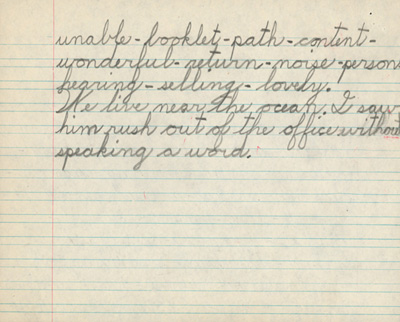 unable - booklet - path - content -
wonderful - return - noise - person
hearing - selling - lovely.
We live near the ocean. I saw
him rush out of the office without
speaking a word.